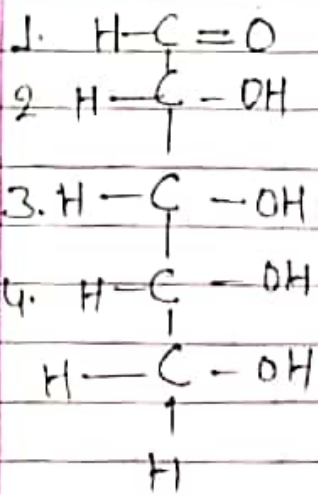 1. H-C=O
2 H-C-OH
3. H-C-OH
4. H-C-OH
H-C-OH
H